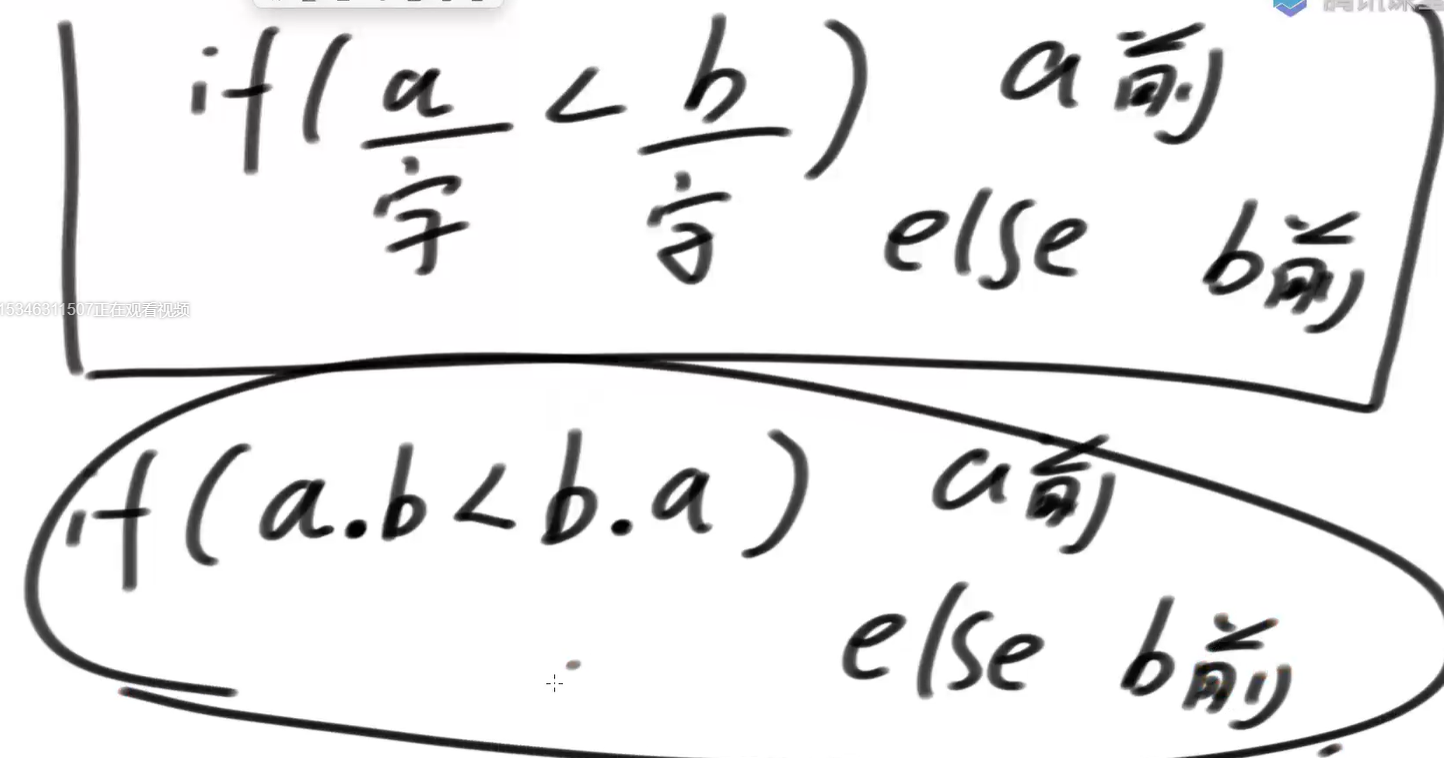 if ( a/字 < b/字 ) a前
else b前
15346311507正在观看视频
if ( a.b < b.a ) a前
else b前